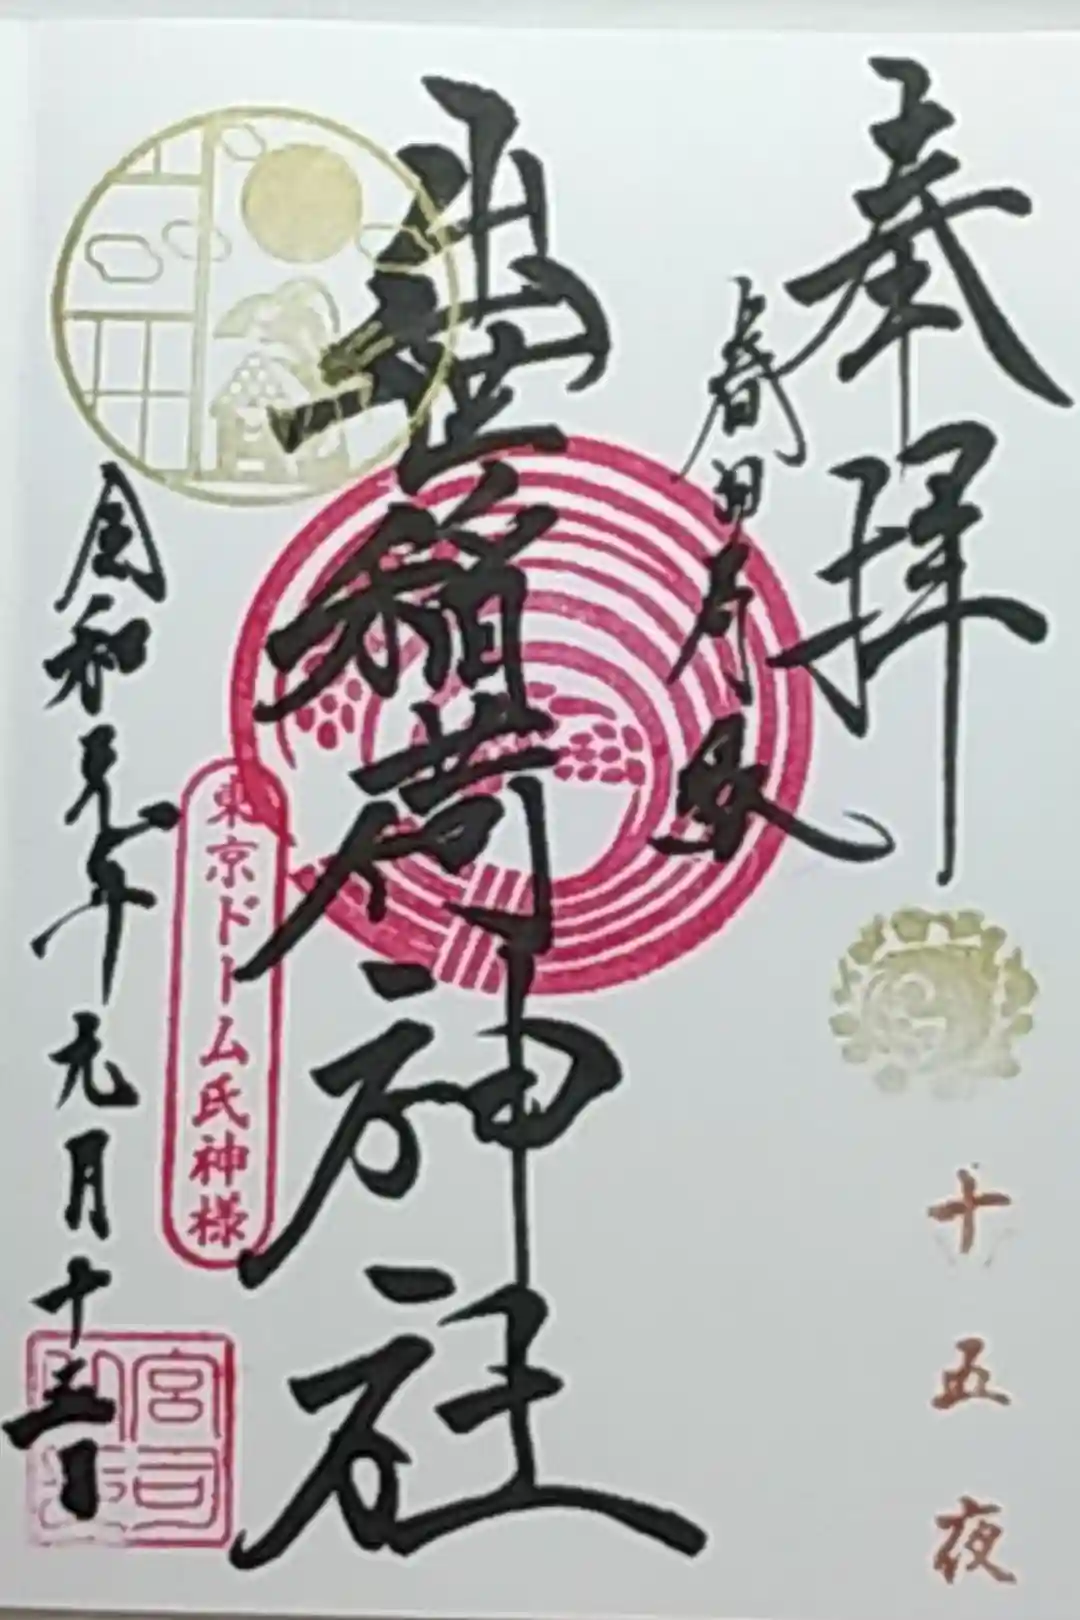 奉拝
春日局
十五夜
出世稲荷神社
東京ドーム氏神様
令和元年九月十三日
宮司之印